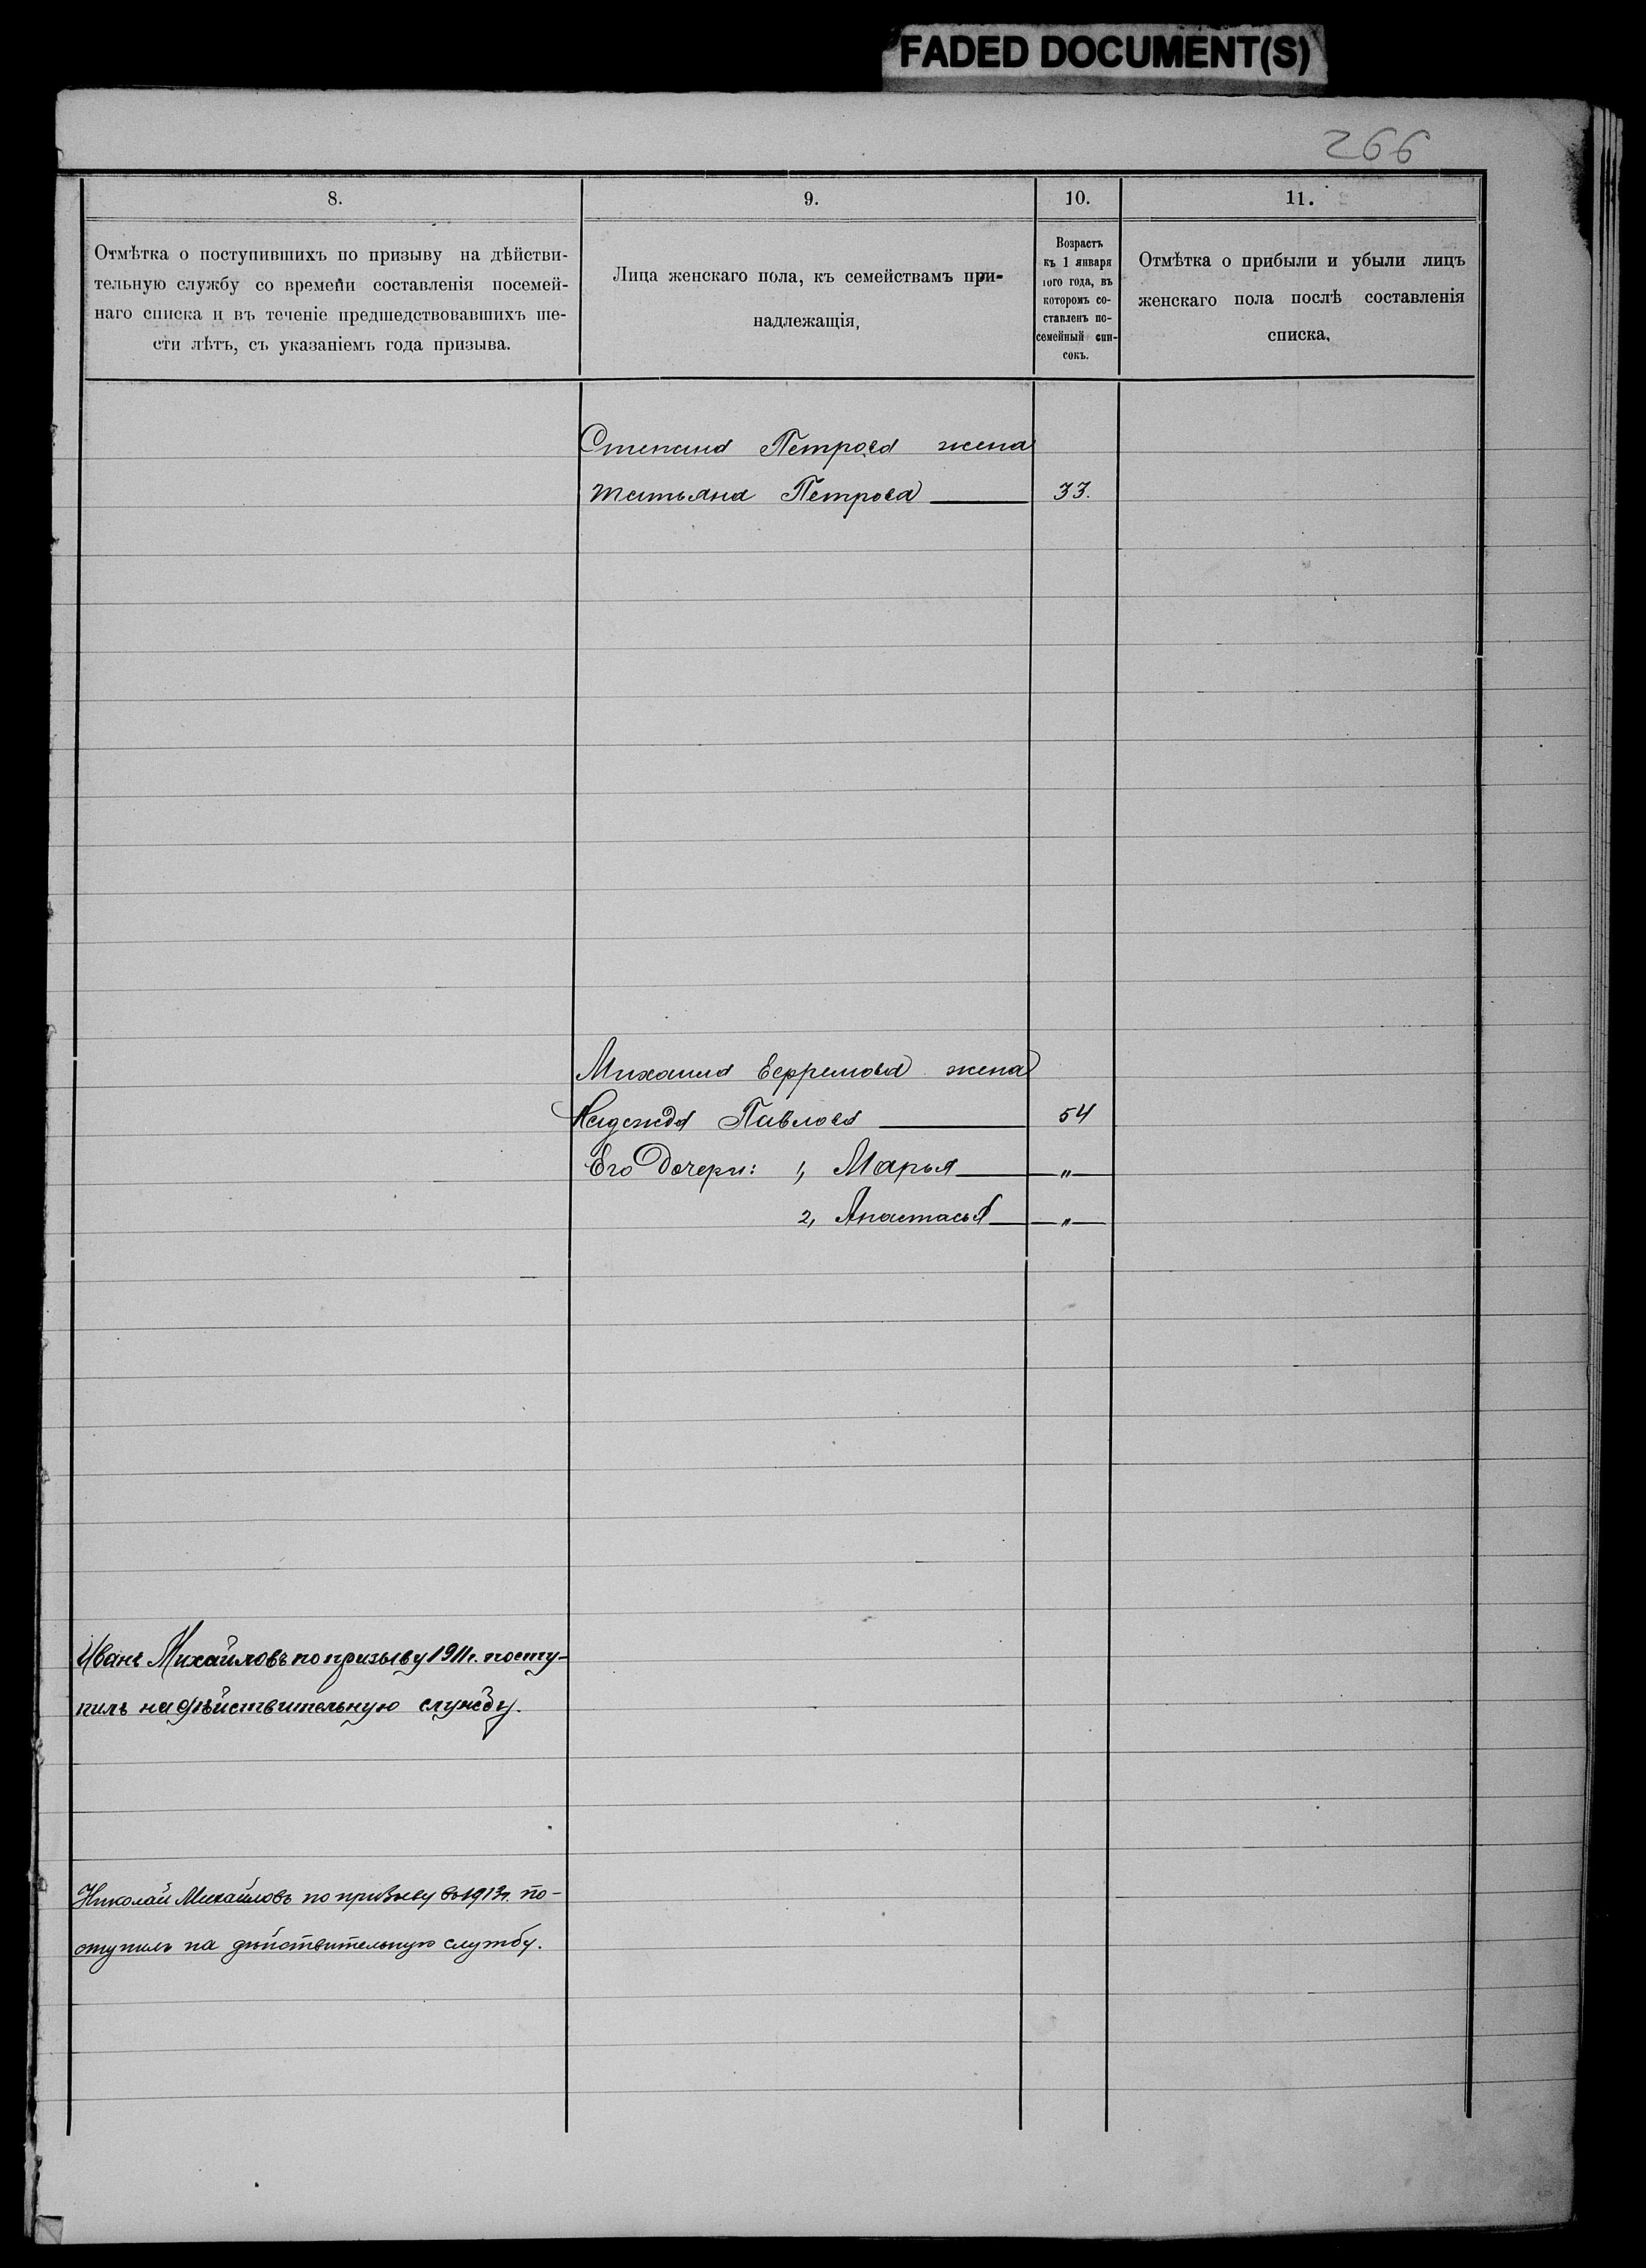 FADED DOCUMENT(S)
266
8.
9.
10.
11.
Отмѣтка о поступившихъ по призыву на дѣйстви-
тельную службу со времени составленія посемей-
наго списка и въ теченіе предшедствовавшихъ ше-
сти лѣтъ, съ указаніемъ года призыва.
Лица женскаго пола, къ семействамъ при-
надлежащія,
Возрастъ
къ 1 января
1ого года, въ
которомъ со-
ставленъ по-
семейный спи-
сокъ.
Отмѣтка о прибыли и убыли лицъ
женскаго пола послѣ составленія
списка.
Степана Петрова жена
Татьяна Петрова 33.
Михаила Ефремова жена
Надежда Павлова 54
Его дочери: 1, Марья "
2, Анастасья "
Иванъ Михайловъ по призыву 1911 г. посту-
пилъ на дѣйствительную службу.
Николай Михайловъ по призыву въ 1913 г. по-
ступилъ на дѣйствительную службу.